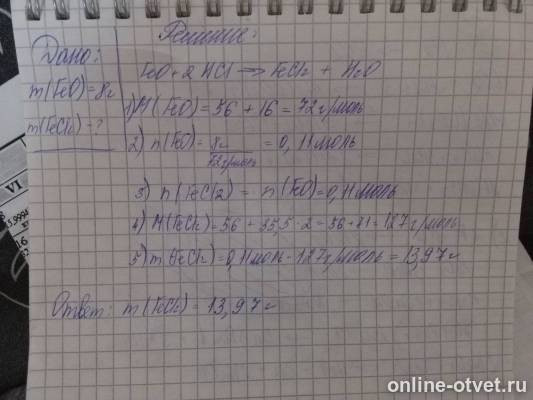 Дано:
m(FeO)=8г
m(FeCl2)-?
Решение:
FeO+2HCl=>FeCl2 + H2O
1) M(FeO)=56+16=72г/моль
2) n(FeO)= 8г/72г/моль =0,11моль
3) n(FeCl2) = n(FeO)=0,11моль
4) M(FeCl2)=56+35,5·2=56+71=127г/моль
5) m(FeCl2)=0,11моль·127г/моль=13,97г
Ответ: m(FeCl2)=13,97г
VI
5.9994
16
online-otvet.ru